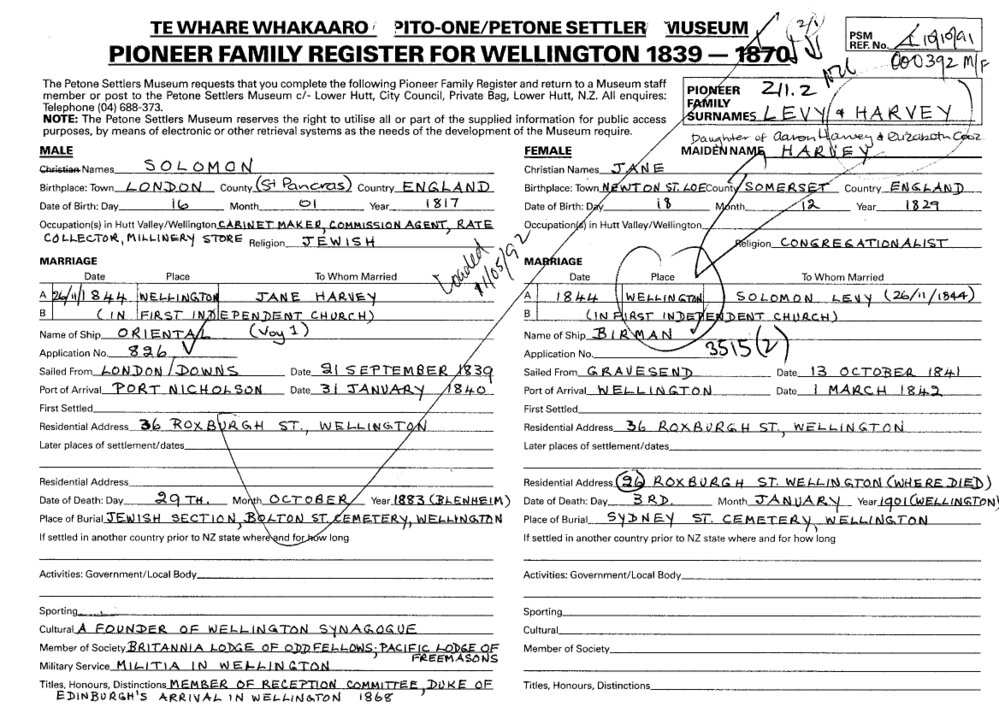 TE WHARE WHAKAARO PITO-ONE/PETONE SETTLER MUSEUM
PIONEER FAMILY REGISTER FOR WELLINGTON 1839 — 1870
2/1
PSM
REF. No. 10/10/91
000392 M/F
The Petone Settlers Museum requests that you complete the following Pioneer Family Register and return to a Museum staff
member or post to the Petone Settlers Museum c/- Lower Hutt, City Council, Private Bag, Lower Hutt, N.Z. All enquires:
Telephone (04) 688-373.
NOTE: The Petone Settlers Museum reserves the right to utilise all or part of the supplied information for public access
purposes, by means of electronic or other retrieval systems as the needs of the development of the Museum require.
PIONEER 2/1.2
FAMILY
SURNAMES LEVY & HARVEY
Daughter of Aaron Harvey & Elizabeth
MAIDEN NAME HARVEY
MALE
Christian Names SOLOMON
Birthplace: Town LONDON County (St Pancras) Country ENGLAND
Date of Birth: Day 16 Month 01 Year 1817
Occupation(s) in Hutt Valley/Wellington CABINET MAKER, COMMISSION AGENT, RATE
COLLECTOR, MILLINERY STORE Religion JEWISH
Loaded
11/05/92
MARRIAGE
Date Place To Whom Married
A 26/11/1844 WELLINGTON JANE HARVEY
B (IN FIRST INDEPENDENT CHURCH)
Name of Ship ORIENTAL (Voy 1)
Application No. 826
Sailed From LONDON/DOWNS Date 21 SEPTEMBER 1839
Port of Arrival PORT NICHOLSON Date 31 JANUARY 1840
First Settled
Residential Address 36 ROXBURGH ST., WELLINGTON
Later places of settlement/dates
Residential Address
Date of Death: Day 29TH. Month OCTOBER Year 1883 (BLENHEIM)
Place of Burial JEWISH SECTION, BOLTON ST. CEMETERY, WELLINGTON
If settled in another country prior to NZ state where and for how long
Activities: Government/Local Body
Sporting
Cultural A FOUNDER OF WELLINGTON SYNAGOGUE
Member of Society BRITANNIA LODGE OF ODDFELLOWS; PACIFIC LODGE OF
FREEMASONS
Military Service MILITIA IN WELLINGTON
Titles, Honours, Distinctions MEMBER OF RECEPTION COMMITTEE, DUKE OF
EDINBURGH'S ARRIVAL IN WELLINGTON 1868
FEMALE
Christian Names JANE
Birthplace: Town NEWTON ST. LOE County SOMERSET Country ENGLAND
Date of Birth: Day 18 Month 12 Year 1829
Occupation(s) in Hutt Valley/Wellington
Religion CONGREGATIONALIST
MARRIAGE
Date Place To Whom Married
A 1844 WELLINGTON SOLOMON LEVY (26/11/1844)
B (IN FIRST INDEPENDENT CHURCH)
Name of Ship BIRMAN
Application No. 3515(2)
Sailed From GRAVESEND Date 13 OCTOBER 1841
Port of Arrival WELLINGTON Date 1 MARCH 1842
First Settled
Residential Address 36 ROXBURGH ST., WELLINGTON
Later places of settlement/dates
Residential Address (26) ROXBURGH ST. WELLINGTON (WHERE DIED)
Date of Death: Day 3RD. Month JANUARY Year 1901 (WELLINGTON)
Place of Burial SYDNEY ST. CEMETERY, WELLINGTON
If settled in another country prior to NZ state where and for how long
Activities: Government/Local Body
Sporting
Cultural
Member of Society
Titles, Honours, Distinctions